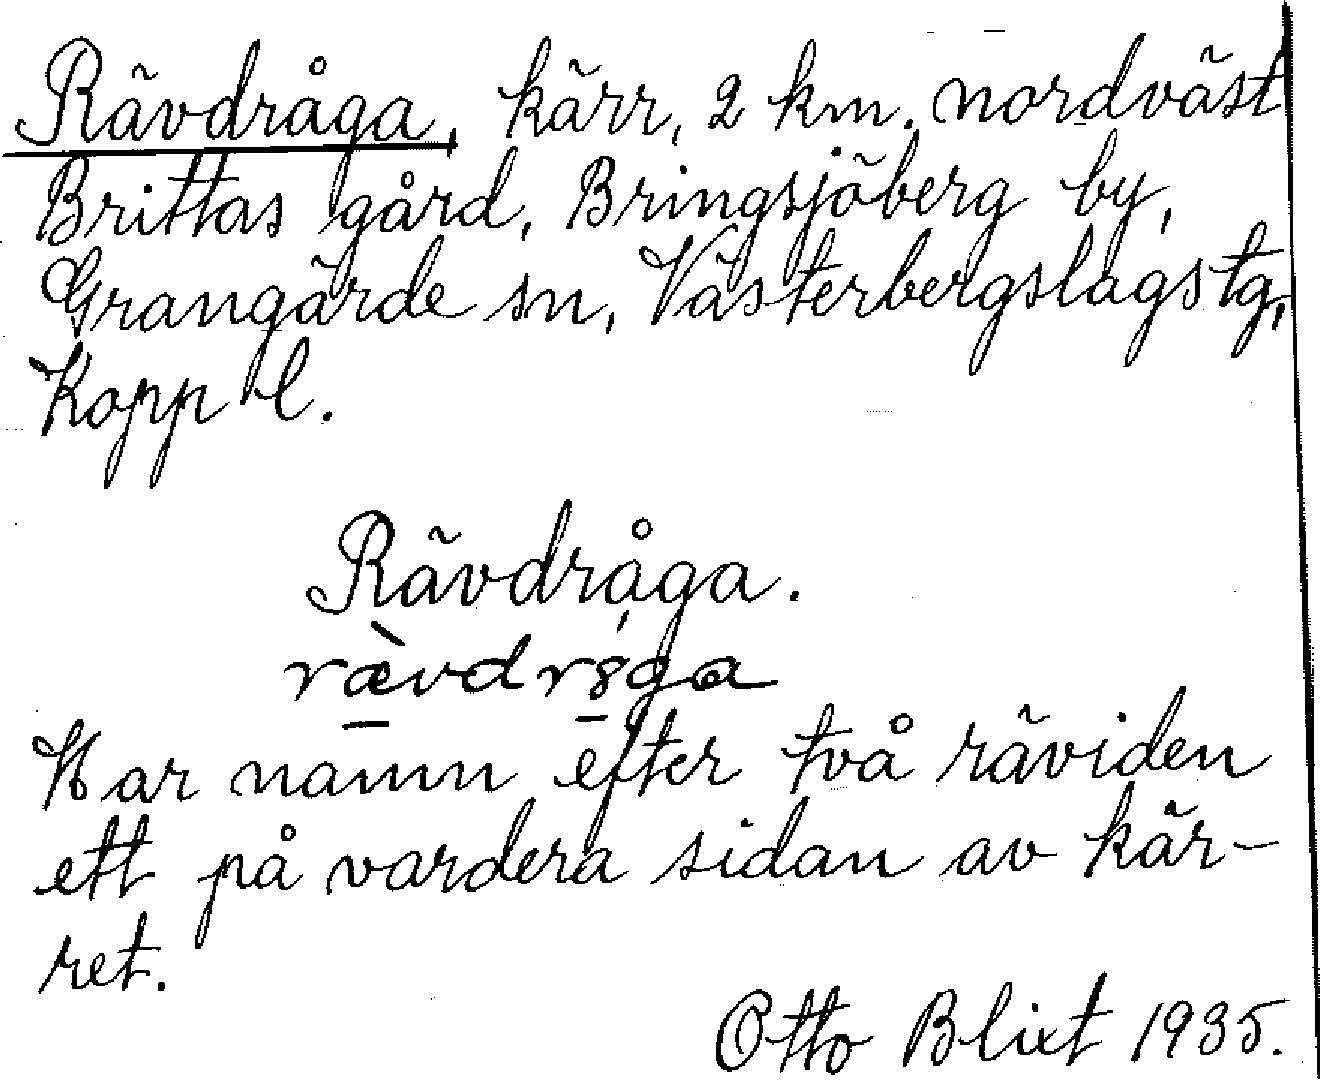 Rävdråga, kärr, 2 km. nordväst
Brittas gård, Bringsjöberg by,
Grangärde sn, Västerbergslags tg,
Kopp l.
Rävdråga.
rævdrga
Har namn efter två räviden
ett på vardera sidan av kär-
ret.
Otto Blixt 1935.